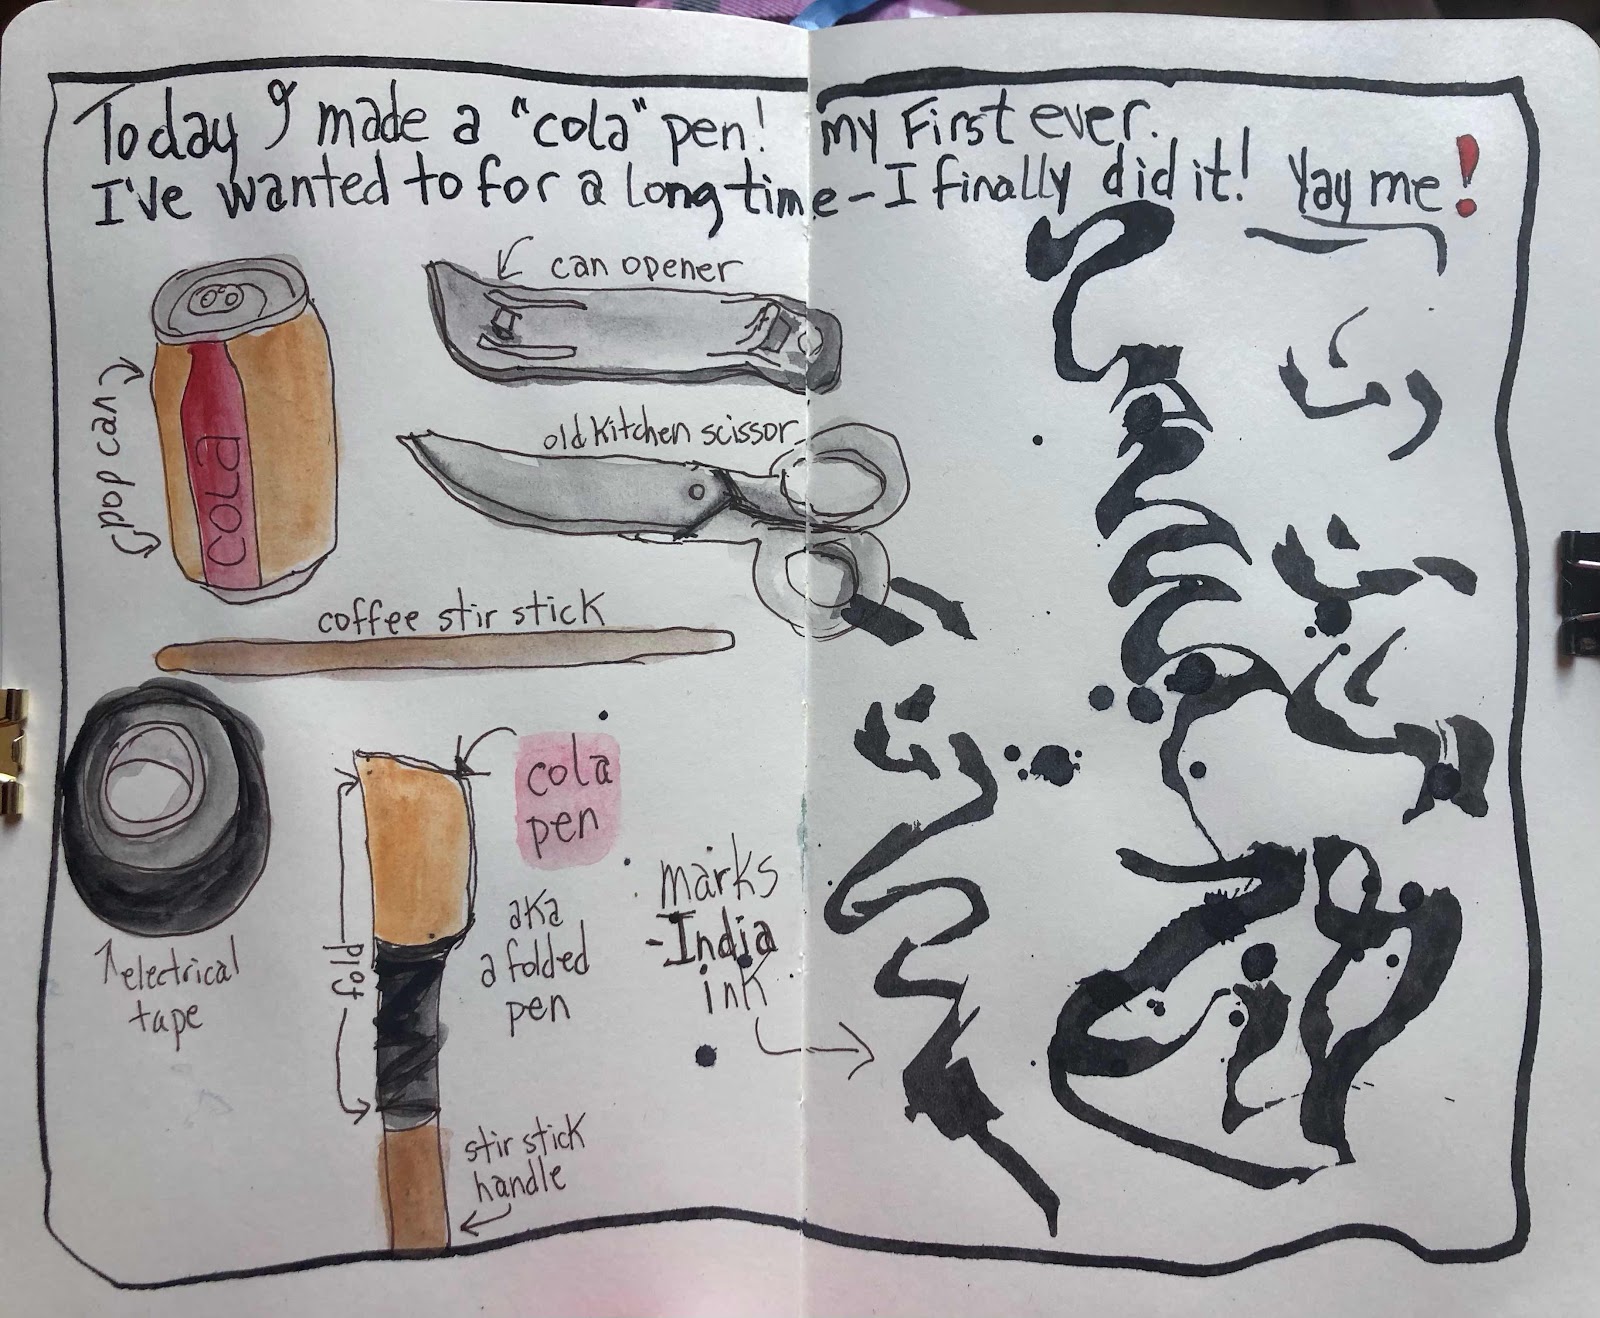 Today I made a "cola" pen! my First ever.
I've wanted to for a long time - I finally did it! Yay me!
can opener
pop can
cola
old kitchen scissor
coffee stir stick
electrical
tape
cola
pen
aka
a folded
pen
fold
stir stick
handle
marks
-India
ink